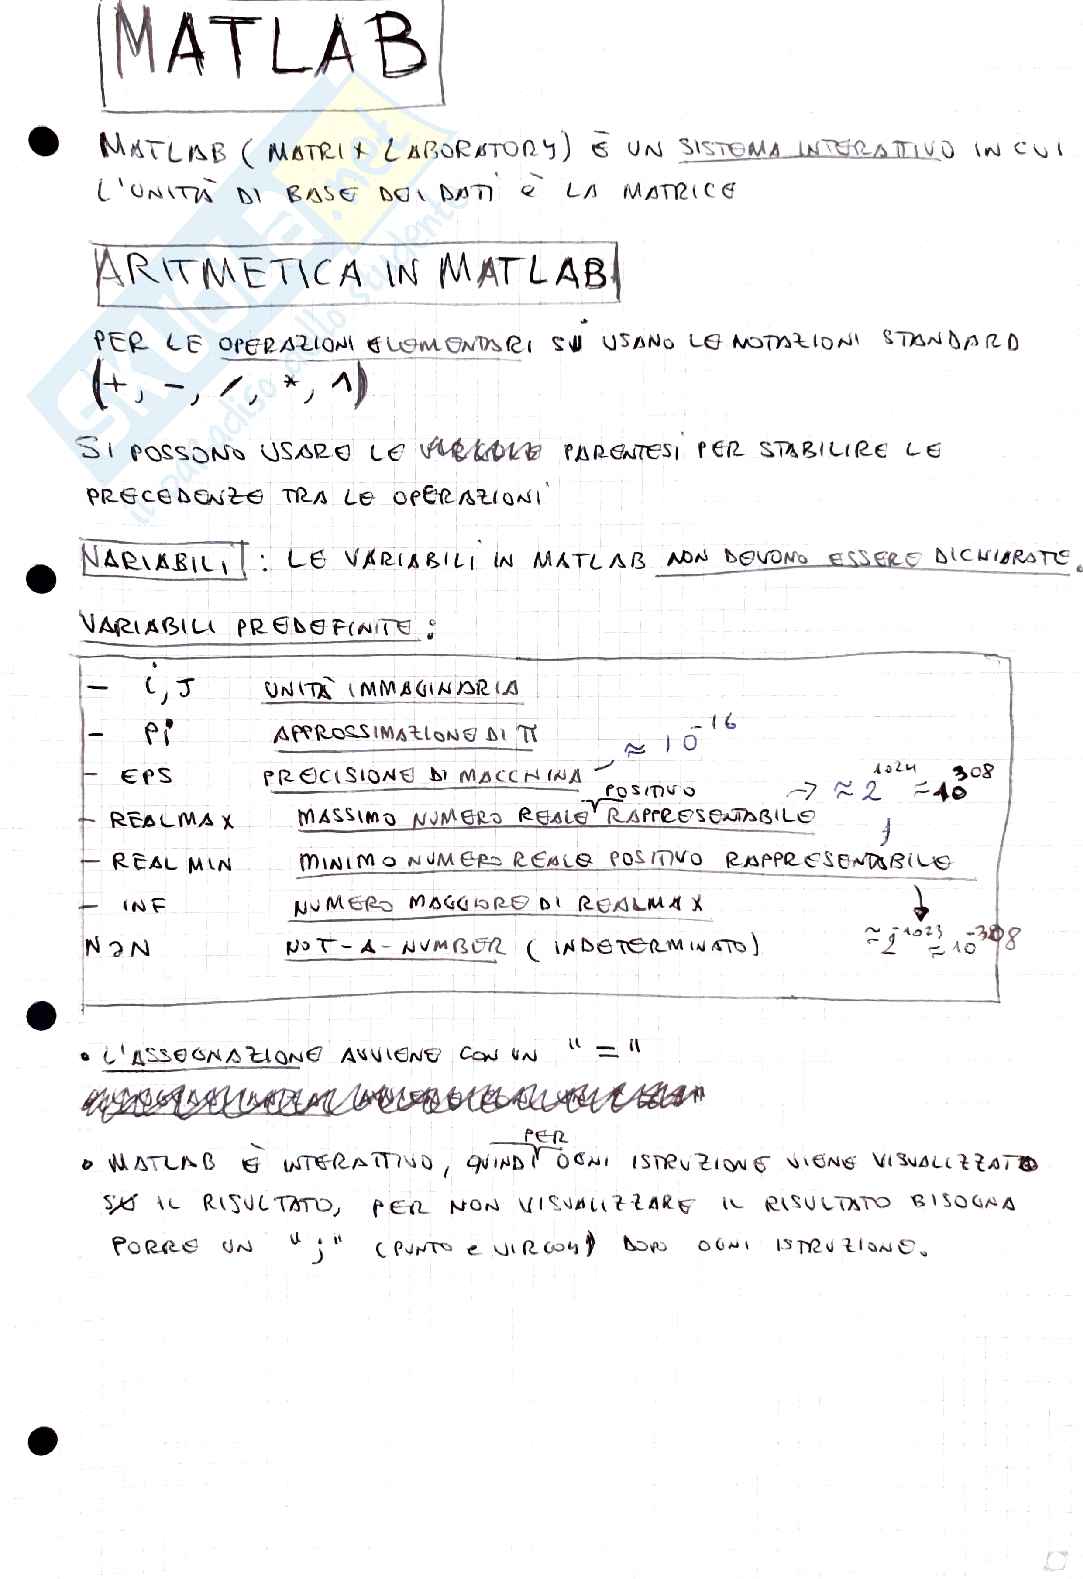 MATLAB
MATLAB (MATRIX LABORATORY) È UN SISTEMA INTERATTIVO IN CUI
L'UNITÀ DI BASE DEI DATI È LA MATRICE
ARITMETICA IN MATLAB
PER LE OPERAZIONI ELEMENTARI SI USANO LE NOTAZIONI STANDARD
(+, -, /, *, ^)
SI POSSONO USARE LE PARENTESI PER STABILIRE LE
PRECEDENZE TRA LE OPERAZIONI
VARIABILI : LE VARIABILI IN MATLAB NON DEVONO ESSERE DICHIARATE.
VARIABILI PREDEFINITE:
- i, J UNITÀ IMMAGINARIA
- Pi APPROSSIMAZIONE DI π
- EPS PRECISIONE DI MACCHINA ≈ 10^-16
- REALMAX MASSIMO NUMERO REALE POSITIVO RAPPRESENTABILE → ≈ 2^1024 ≈ 10^308
- REALMIN MINIMO NUMERO REALE POSITIVO RAPPRESENTABILE
- INF NUMERO MAGGIORE DI REALMAX
NaN NOT-A-NUMBER (INDETERMINATO) ≈ 2^-1023 ≈ 10^-308
• L'ASSEGNAZIONE AVVIENE CON UN "="
• MATLAB È INTERATTIVO, QUINDI PER OGNI ISTRUZIONE VIENE VISUALIZZATO
IL RISULTATO, PER NON VISUALIZZARE IL RISULTATO BISOGNA
PORRE UN ";" (PUNTO e VIRGOLA) DOPO OGNI ISTRUZIONE.
SKUOLA.net
il paradiso dello studente